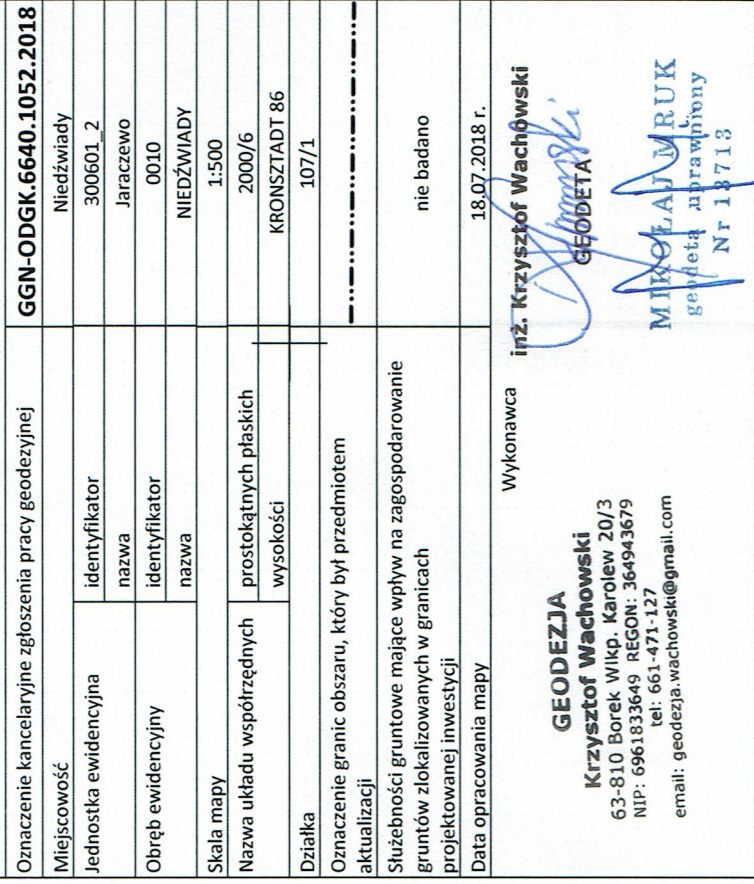 Oznaczenie kancelaryjne zgłoszenia pracy geodezyjnej GGN-ODGK.6640.1052.2018
Miejscowość Niedźwiady
Jednostka ewidencyjna identyfikator 300601_2
nazwa Jaraczewo
Obręb ewidencyjny identyfikator 0010
nazwa NIEDŹWIADY
Skala mapy 1:500
Nazwa układu współrzędnych prostokątnych płaskich 2000/6
wysokości KRONSZTADT 86
Działka 107/1
Oznaczenie granic obszaru, który był przedmiotem
aktualizacji
Służebności gruntowe mające wpływ na zagospodarowanie
gruntów zlokalizowanych w granicach nie badano
projektowanej inwestycji
Data opracowania mapy 18.07.2018 r.
Wykonawca
GEODEZJA
Krzysztof Wachowski
63-810 Borek Wlkp. Karolew 20/3
NIP: 6961833649 REGON: 364943679
tel: 661-471-127
email: geodezja.wachowski@gmail.com
inż. Krzysztof Wachowski
GEODETA
MIKOŁAJ MRUK
geodeta uprawniony
Nr 13713